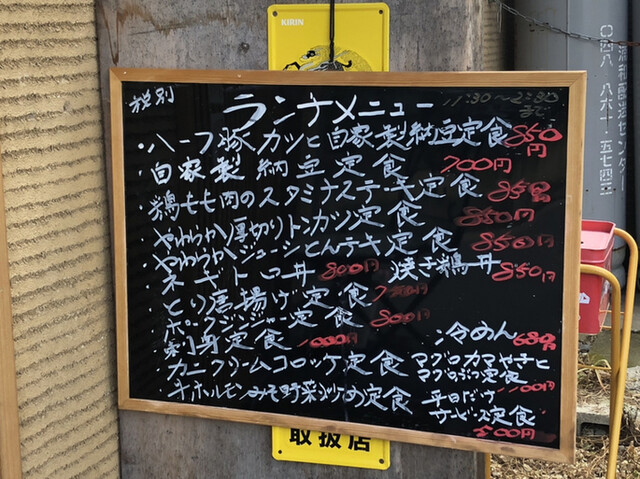 KIRIN
税別
ランチメニュー
11:30~2:30
・ハーフ豚カツと自家製納豆定食 850円
・自家製納豆定食 700円
・鶏もも肉のスタミナステーキ定食 850円
・やわらか厚切りトンカツ定食 850円
・やわらかジューシとんテキ定食 850円
・ネギトロ丼 800円 焼き鶏丼 850円
・とり唐揚げ定食
・ポークジンジャー定食 800円
・刺身定食 1000円
冷めん 680円
・カニクリームコロッケ定食
マグロカマやきと
マグロぶつ定食
1100円
・牛ホルモンみそ野菜いため定食
平日だけ
サービス定食
500円
取扱店
048 861-5742